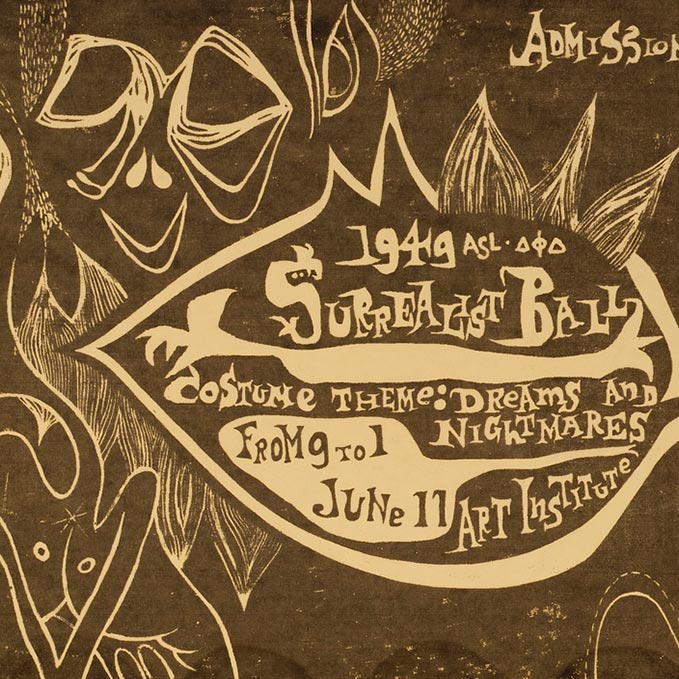 ADMISSION
1949 ASL · ΔΦΔ
SURREALIST BALL
COSTUME THEME: DREAMS AND
NIGHTMARES
FROM 9 TO 1
JUNE 11
ART INSTITUTE